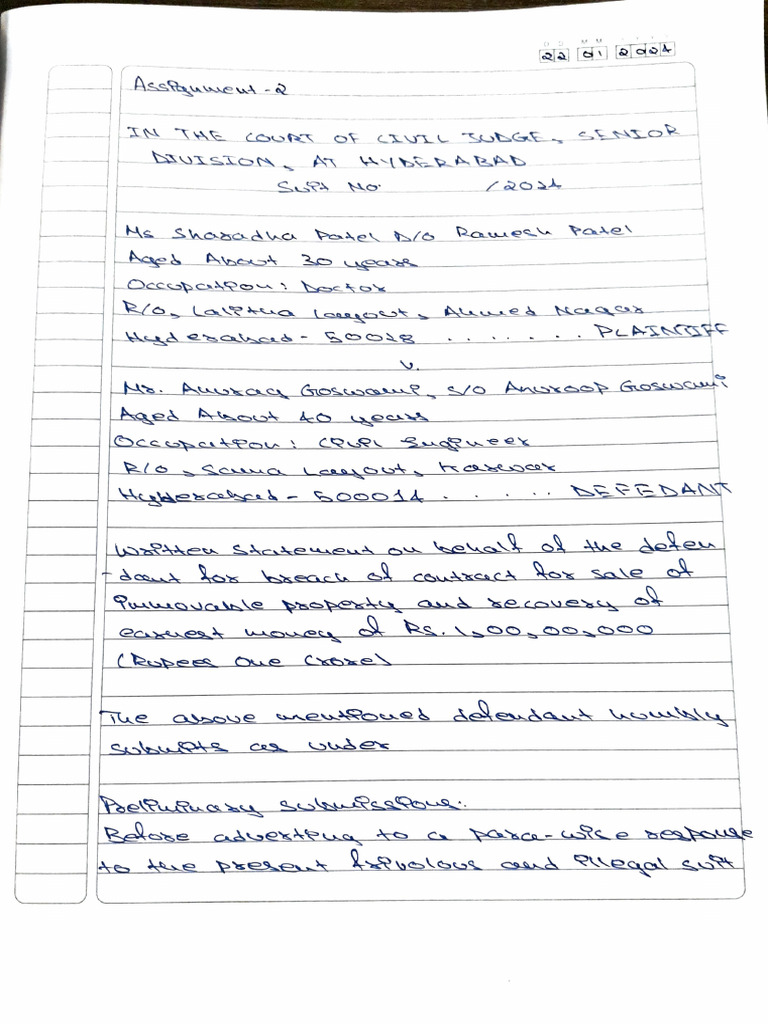 D D M M Y Y Y Y
22 01 2024
Assignment - 2
IN THE COURT OF CIVIL JUDGE, SENIOR
DIVISION, AT HYDERABAD
Suit No. /2024
Ms Sharadha Patel D/o Ramesh Patel
Aged About 30 years
Occupation: Doctor
R/O, Lalitha Layout, Ahmed Nagar
Hyderabad - 50028 ....... PLAINTIFF
v.
Mr. Anurag Goswami, s/o Anuroop Goswami
Aged About 40 years
Occupation: Civil Engineer
R/O, Sama Layout, Karwar
Hyderabad - 500014 ...... DEFEDANT
Written statement on behalf of the defen
-dant for breach of contract for sale of
immovable property and recovery of
earnest money of Rs. 1,00,00,000
(Rupees One Crore)
The above mentioned defendant humbly
submits as under
Preliminary submissions:
Before adverting to a para-wise response
to the present frivolous and illegal suit